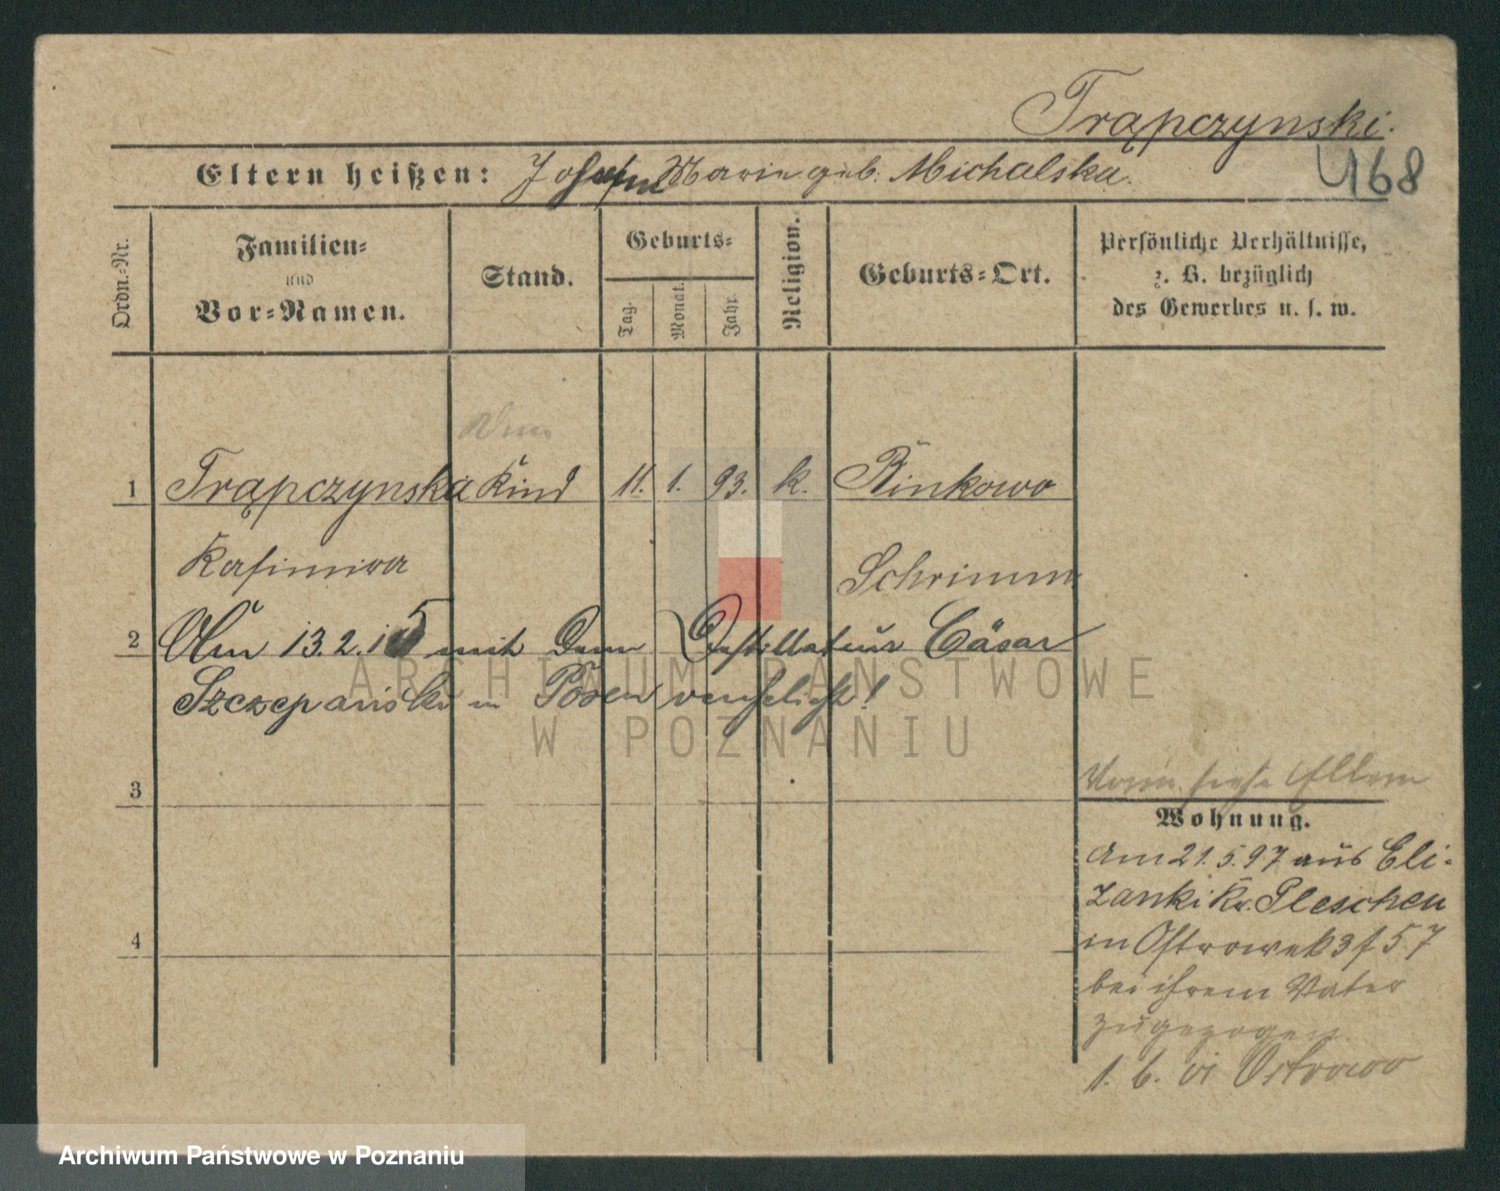 Trąpczynski.
Eltern heißen: Josef u Marie geb. Michalska.
468
Ordn.=Nr.
Familien=
und
Vor=Namen.
Stand.
Geburts=
Tag.
Monat.
Jahr.
Religion.
Geburts=Ort.
Persönliche Verhältnisse,
z. B. bezüglich
des Gewerbes u. s. w.
1 Trąpczynska Kind 11. 1. 93. k. Binkowo
Kasimira
Schrimm
2 Am 13.2.15 mit dem Destillateur Cäsar
Szczepański in Posen verehelicht!
3
siehe Eltern
Wohnung.
4
Am 21.5.97 aus Eli=
zanki Kr. Pleschen
in Ostrowek 3 f 57
bei ihrem Vater
zugezogen
1. 6. Ostrowo
ARCHIWUM PAŃSTWOWE
W POZNANIU
Archiwum Państwowe w Poznaniu